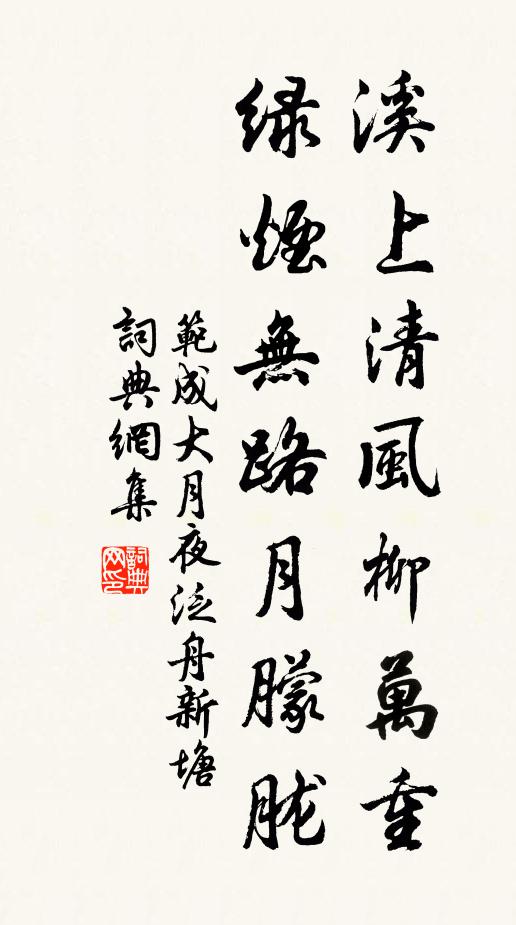 溪上清風柳萬重
綠煙無路月朦朧
範成大月夜泛舟新塘
詞典網集
詞典网印